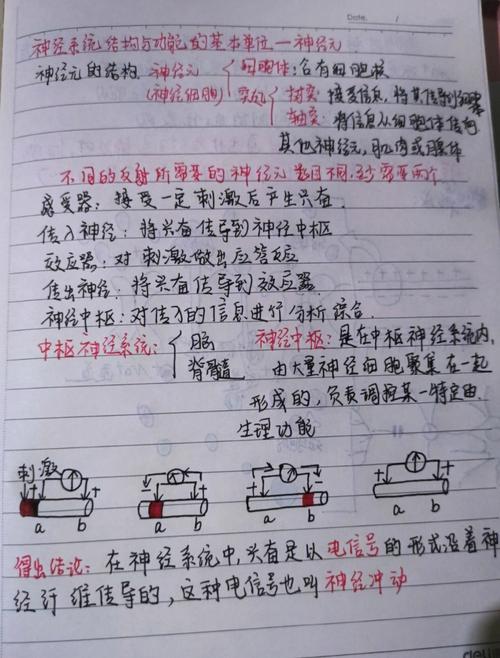 Date. /
神经系统结构与功能的基本单位—神经元
神经元的结构 神经元 { 细胞体：含有细胞核
(神经细胞) 突起 { 树突：接受信息，将其传导到细胞体
轴突：将信息从细胞体传向
其他神经元，肌肉或腺体
不同的反射所需要的神经元数目不同，至少需要两个
感受器：接受一定刺激后产生兴奋.
传入神经：将兴奋传导到神经中枢
效应器：对刺激做出应答反应
传出神经：将兴奋传导到效应器
神经中枢：对传入的信息进行分析综合.
中枢神经系统： { 脑 神经中枢：是在中枢神经系统内,
脊髓 由大量神经细胞聚集在一起
形成的，负责调控某一特定
生理功能
刺激
+ + - + + - + +
a b a b a b a b
得出结论：在神经系统中，兴奋是以电信号的形式沿着神
经纤维传导的，这种电信号也叫神经冲动
deli